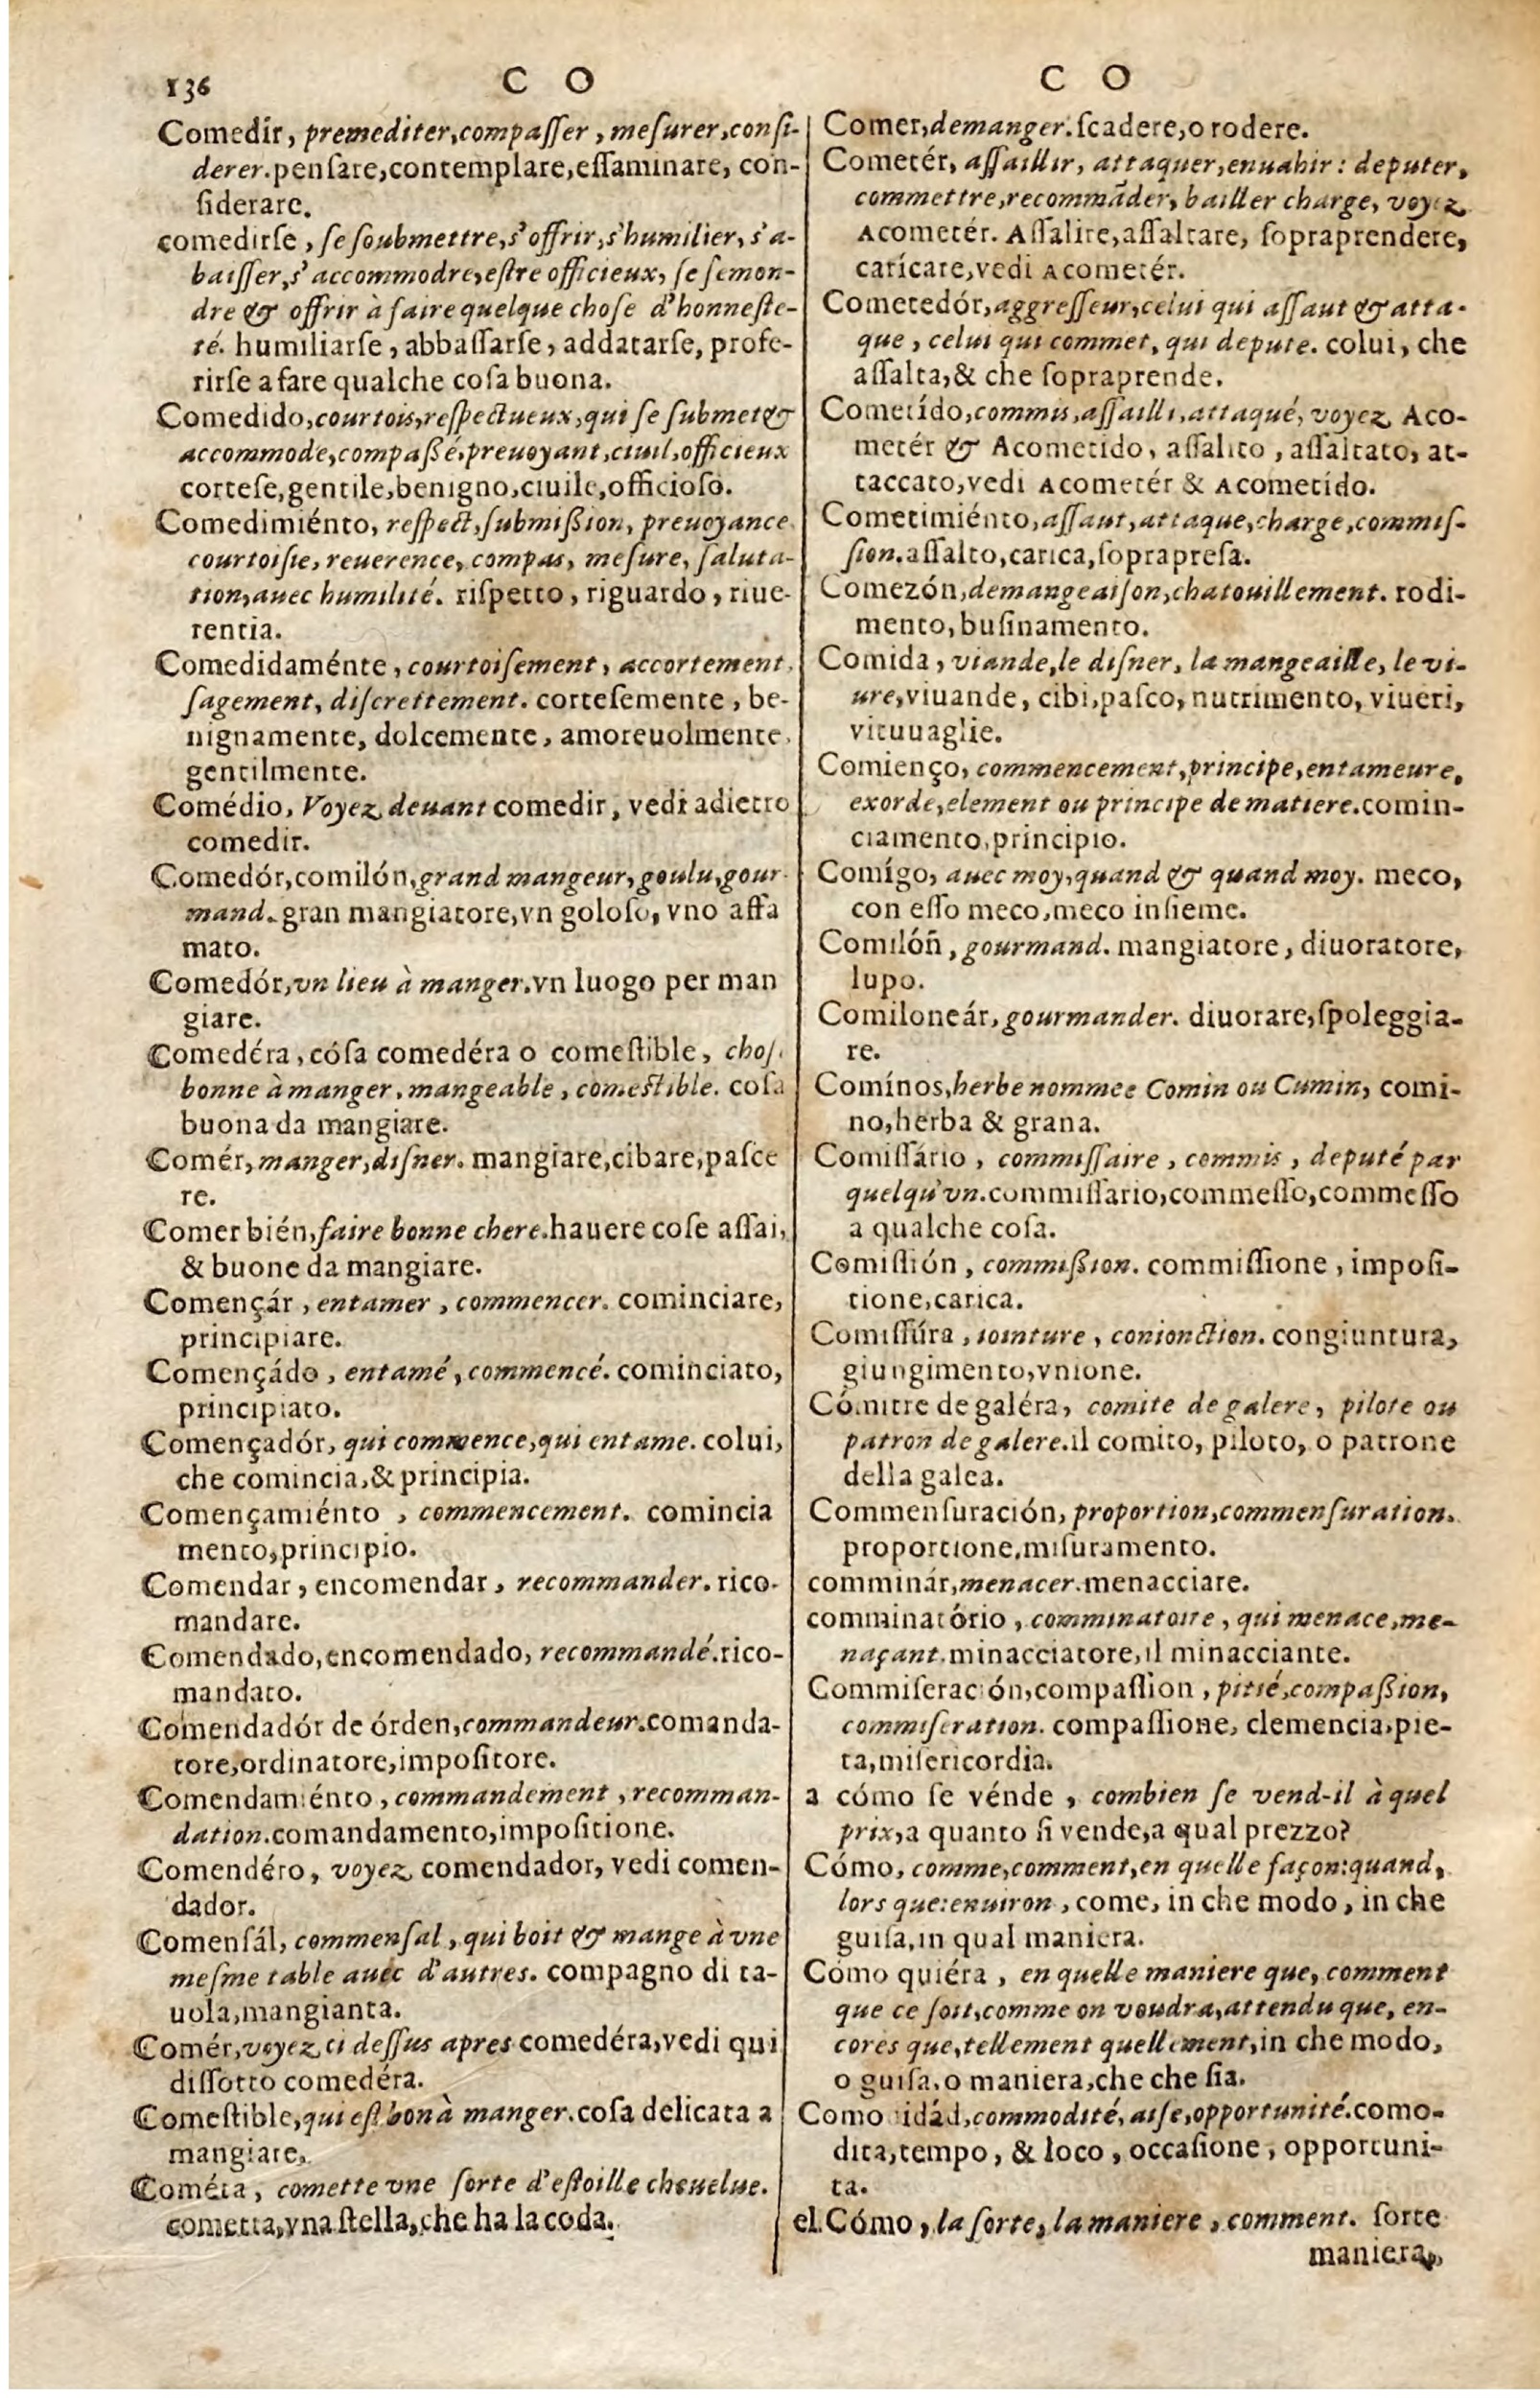 136 C O C O
Comedír, premediter, compaſſer, meſurer, conſi-
derer. penſare, contemplare, eſſaminare, con-
ſiderare.
comedirſe, ſe ſoubmettre, s'offrir, s'humilier, s'a-
baiſſer, s'accommodre, eſtre officieux, ſe ſemon-
dre & offrir à faire quelque choſe d'honneſte-
té. humiliarſe, abbaſſarſe, addatarſe, profe-
rirſe a fare qualche coſa buona.
Comedido, courtois, reſpectueux, qui ſe ſubmet &
accommode, compaßé, preuoyant, ciuil, officieux
corteſe, gentile, benigno, ciuile, officioſo.
Comedimiénto, reſpect, ſubmißion, preuoyance
courtoiſie, reuerence, compas, meſure, ſaluta-
tion, auec humilité. riſpetto, riguardo, riue-
rentia.
Comedidaménte, courtoiſement, accortement,
ſagement, diſcrettement. corteſemente, be-
nignamente, dolcemente, amoreuolmente,
gentilmente.
Comédio, Voyez deuant comedir, vedi adietro
comedir.
Comedór, comilón, grand mangeur, goulu, gour-
mand. gran mangiatore, vn goloſo, vno affa
mato.
Comedór, vn lieu à manger. vn luogo per man
giare.
Comedéra, cóſa comedéra o comeſtible, choſ.
bonne à manger, mangeable, comeſtible. coſa
buona da mangiare.
Comér, manger, diſner. mangiare, cibare, paſce
re.
Comer bién, faire bonne chere. hauere coſe aſſai,
& buone da mangiare.
Començár, entamer, commencer. cominciare,
principiare.
Començádo, entamé, commencé. cominciato,
principiato.
Començadór, qui commence, qui entame. colui,
che comincia, & principia.
Començamiénto, commencement. comincia
mento, principio.
Comendar, encomendar, recommander. rico-
mandare.
Comendado, encomendado, recommandé. rico-
mandato.
Comendadór de órden, commandeur. comanda-
tore, ordinatore, impoſitore.
Comendamiénto, commandement, recomman-
dation. comandamento, impoſitione.
Comendéro, voyez comendador, vedi comen-
dador.
Comenſál, commenſal, qui boit & mange à vne
meſme table auec d'autres. compagno di ta-
uola, mangianta.
Comér, voyez ci deſſus apres comedéra, vedi qui
diſſotto comedéra.
Comeſtible, qui eſt bon à manger. coſa delicata a
mangiare.
Cométa, comette vne ſorte d'eſtoille cheuelue.
cometta, vna ſtella, che ha la coda.
Comer, demanger. ſcadere, o rodere.
Cometér, aſſaillir, attaquer, enuahir: deputer,
commettre, recommãder, bailler charge, voyez
Acometér. Aſſalire, aſſaltare, ſopraprendere,
carícare, vedi Acometér.
Cometedór, aggreſſeur, celui qui aſſaut & atta-
que, celui qui commet, qui depute. colui, che
aſſalta, & che ſopraprende.
Cometído, commis, aſſailli, attaqué, voyez Aco-
metér & Acometido, aſſalito, aſſaltato, at-
taccato, vedi Acometér & Acometído.
Cometimiénto, aſſaut, attaque, charge, commiſ-
ſion. aſſalto, carica, ſopraprefa.
Comezón, demangeaiſon, chatouillement. rodi-
mento, buſinamento.
Comida, viande, le diſner, la mangeaille, le vi-
ure, viuande, cibi, paſco, nutrimento, viueri,
vituuaglie.
Comienço, commencement, principe, entameure,
exorde, element ou principe de matiere. comin-
ciamento, principio.
Comígo, auec moy, quand & quand moy. meco,
con eſſo meco, meco inſieme.
Comilóñ, gourmand. mangiatore, diuoratore,
lupo.
Comiloneár, gourmander. diuorare, ſpoleggia-
re.
Comínos, herbe nommee Comin ou Cumin, comi-
no, herba & grana.
Comiſſário, commiſſaire, commis, deputé par
quelqu'vn. commiſſario, commeſſo, commeſſo
a qualche coſa.
Comiſſión, commißion. commiſſione, impoſi-
tione, carica.
Comiſſúra, iointure, conionction. congiuntura,
giungimento, vnione.
Cómitre de galéra, comite de galere, pilote ou
patron de galere. il comito, piloto, o patrone
della galea.
Commenſuración, proportion, commenſuration.
proportione, miſuramento.
comminár, menacer. menacciare.
comminatório, comminatoire, qui menace, me-
naçant. minacciatore, il minacciante.
Commiſeración, compaſſion, pitié, compaßion,
commiſeration. compaſſione, clemencia, pie-
ta, miſericordia.
a cómo ſe vénde, combien ſe vend-il à quel
prix, a quanto ſi vende, a qual prezzo?
Cómo, comme, comment, en quelle façon: quand,
lors que: enuiron, come, in che modo, in che
guiſa, in qual maniera.
Cómo quiéra, en quelle maniere que, comment
que ce ſoit, comme on voudra, attendu que, en-
cores que, tellement quellement, in che modo,
o guiſa, o maniera, che che ſia.
Como idád, commodité, aiſe, opportunité. como-
dita, tempo, & loco, occaſione, opportuni-
ta.
el Cómo, la ſorte, la maniere, comment. ſorte
maniera,